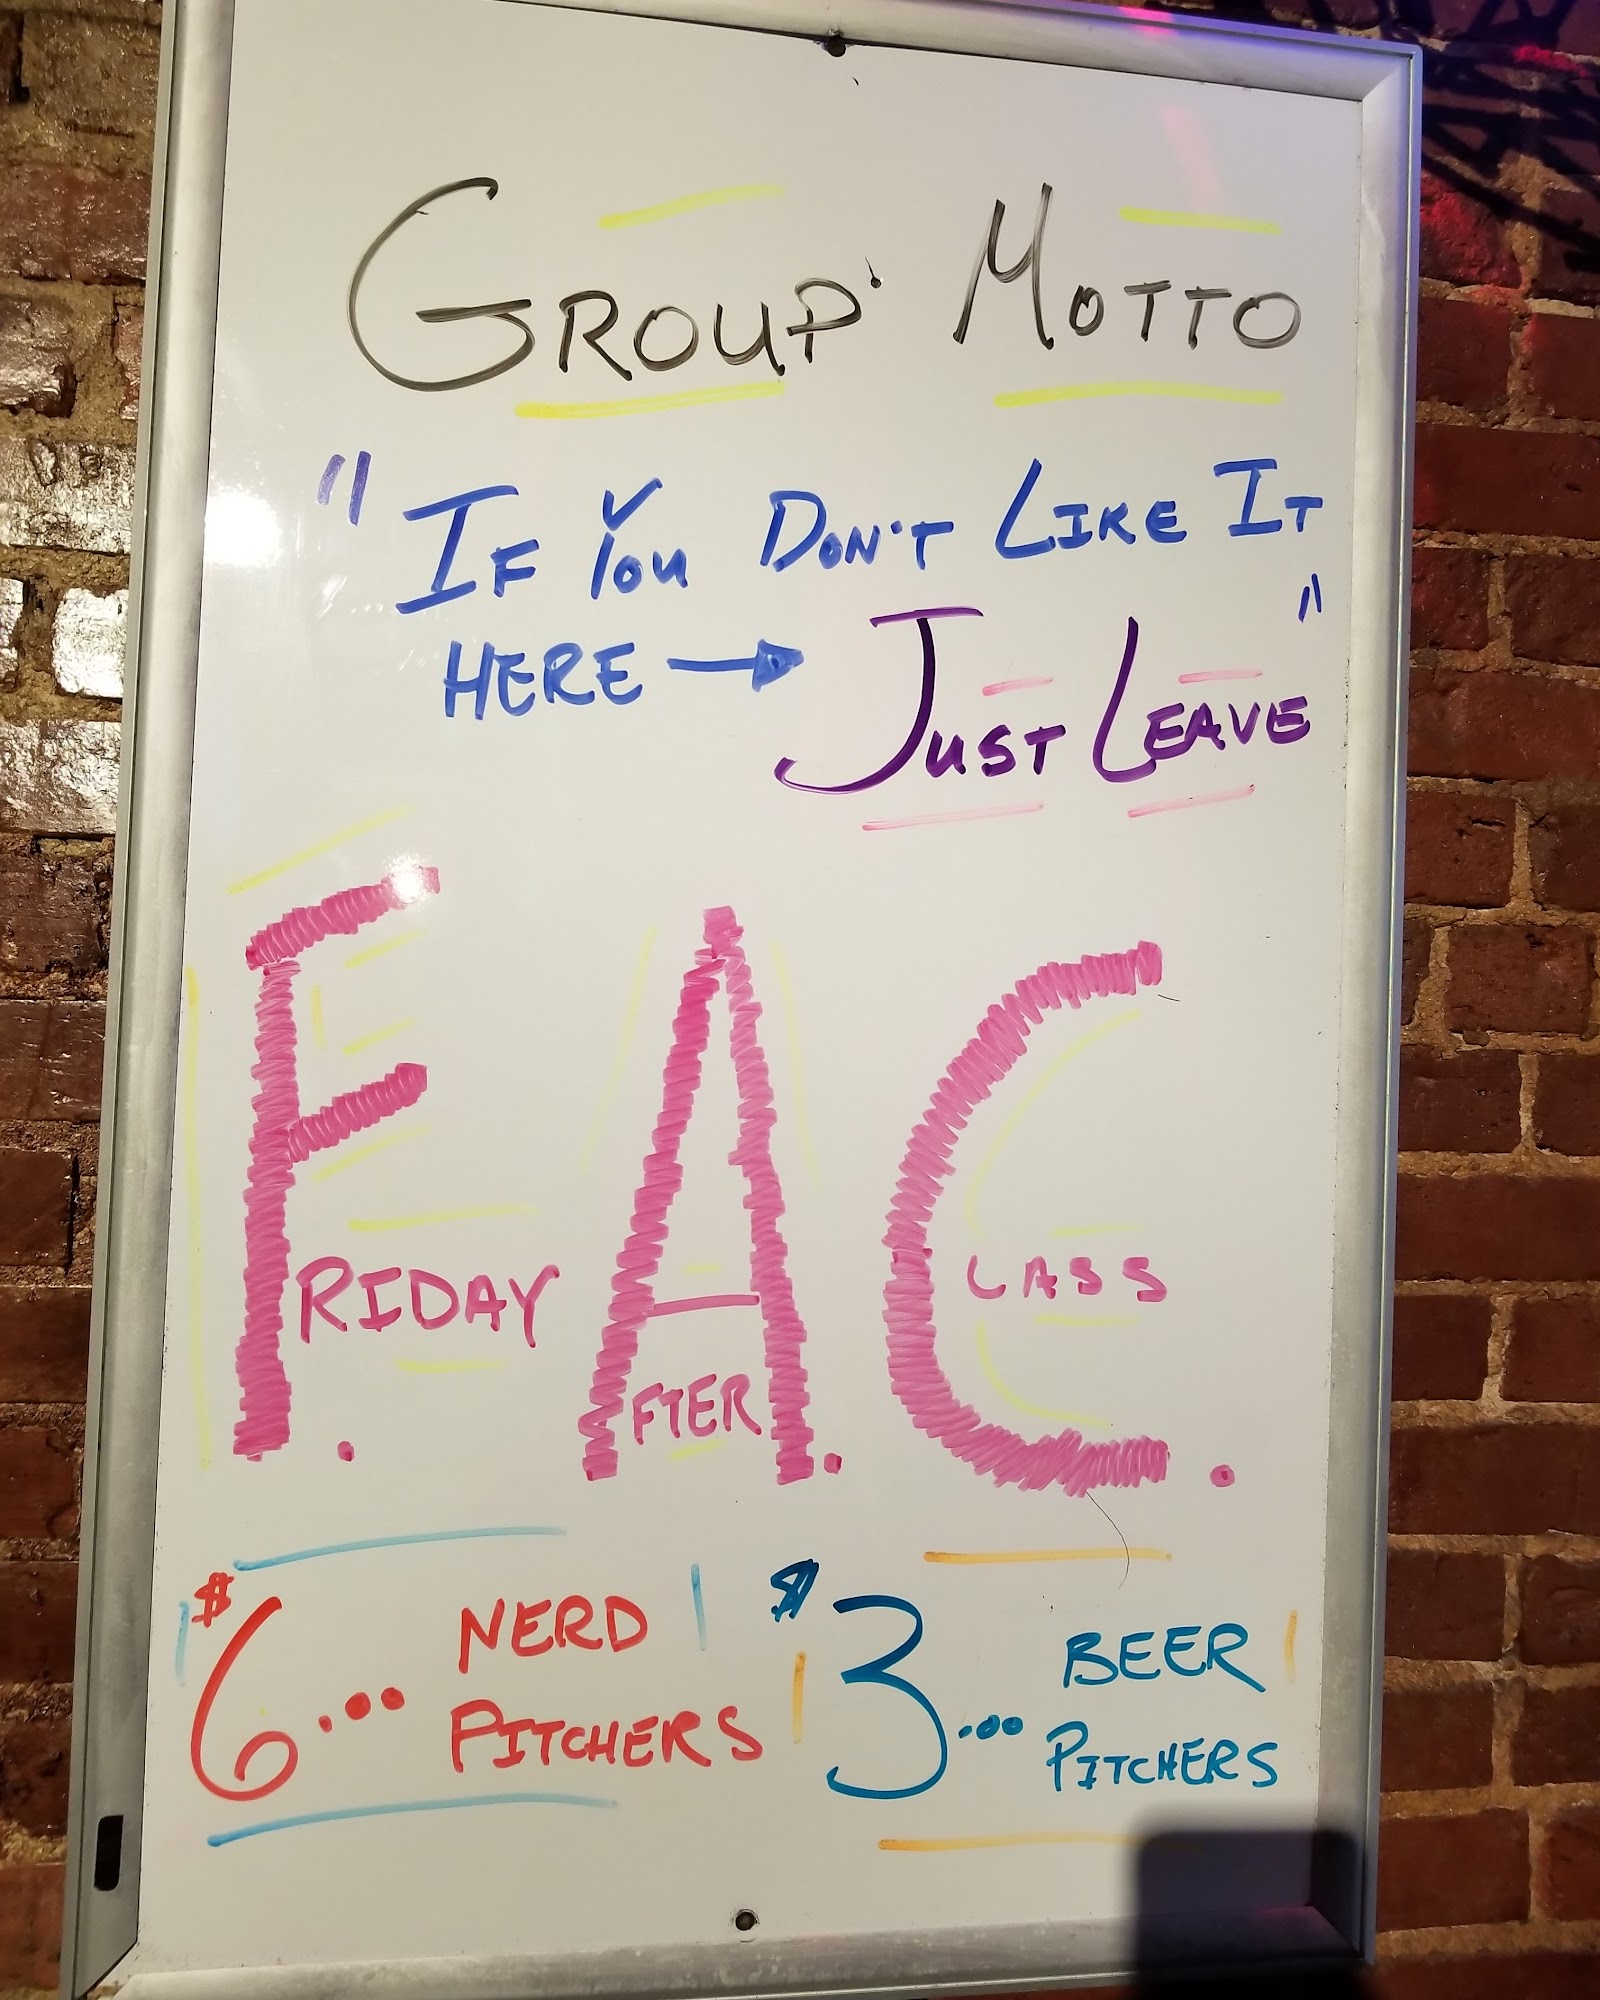 GROUP MOTTO
"IF YOU DON'T LIKE IT
HERE → JUST LEAVE"
F. A. C.
FRIDAY AFTER CLASS
$6... NERD PITCHERS
$3... BEER PITCHERS